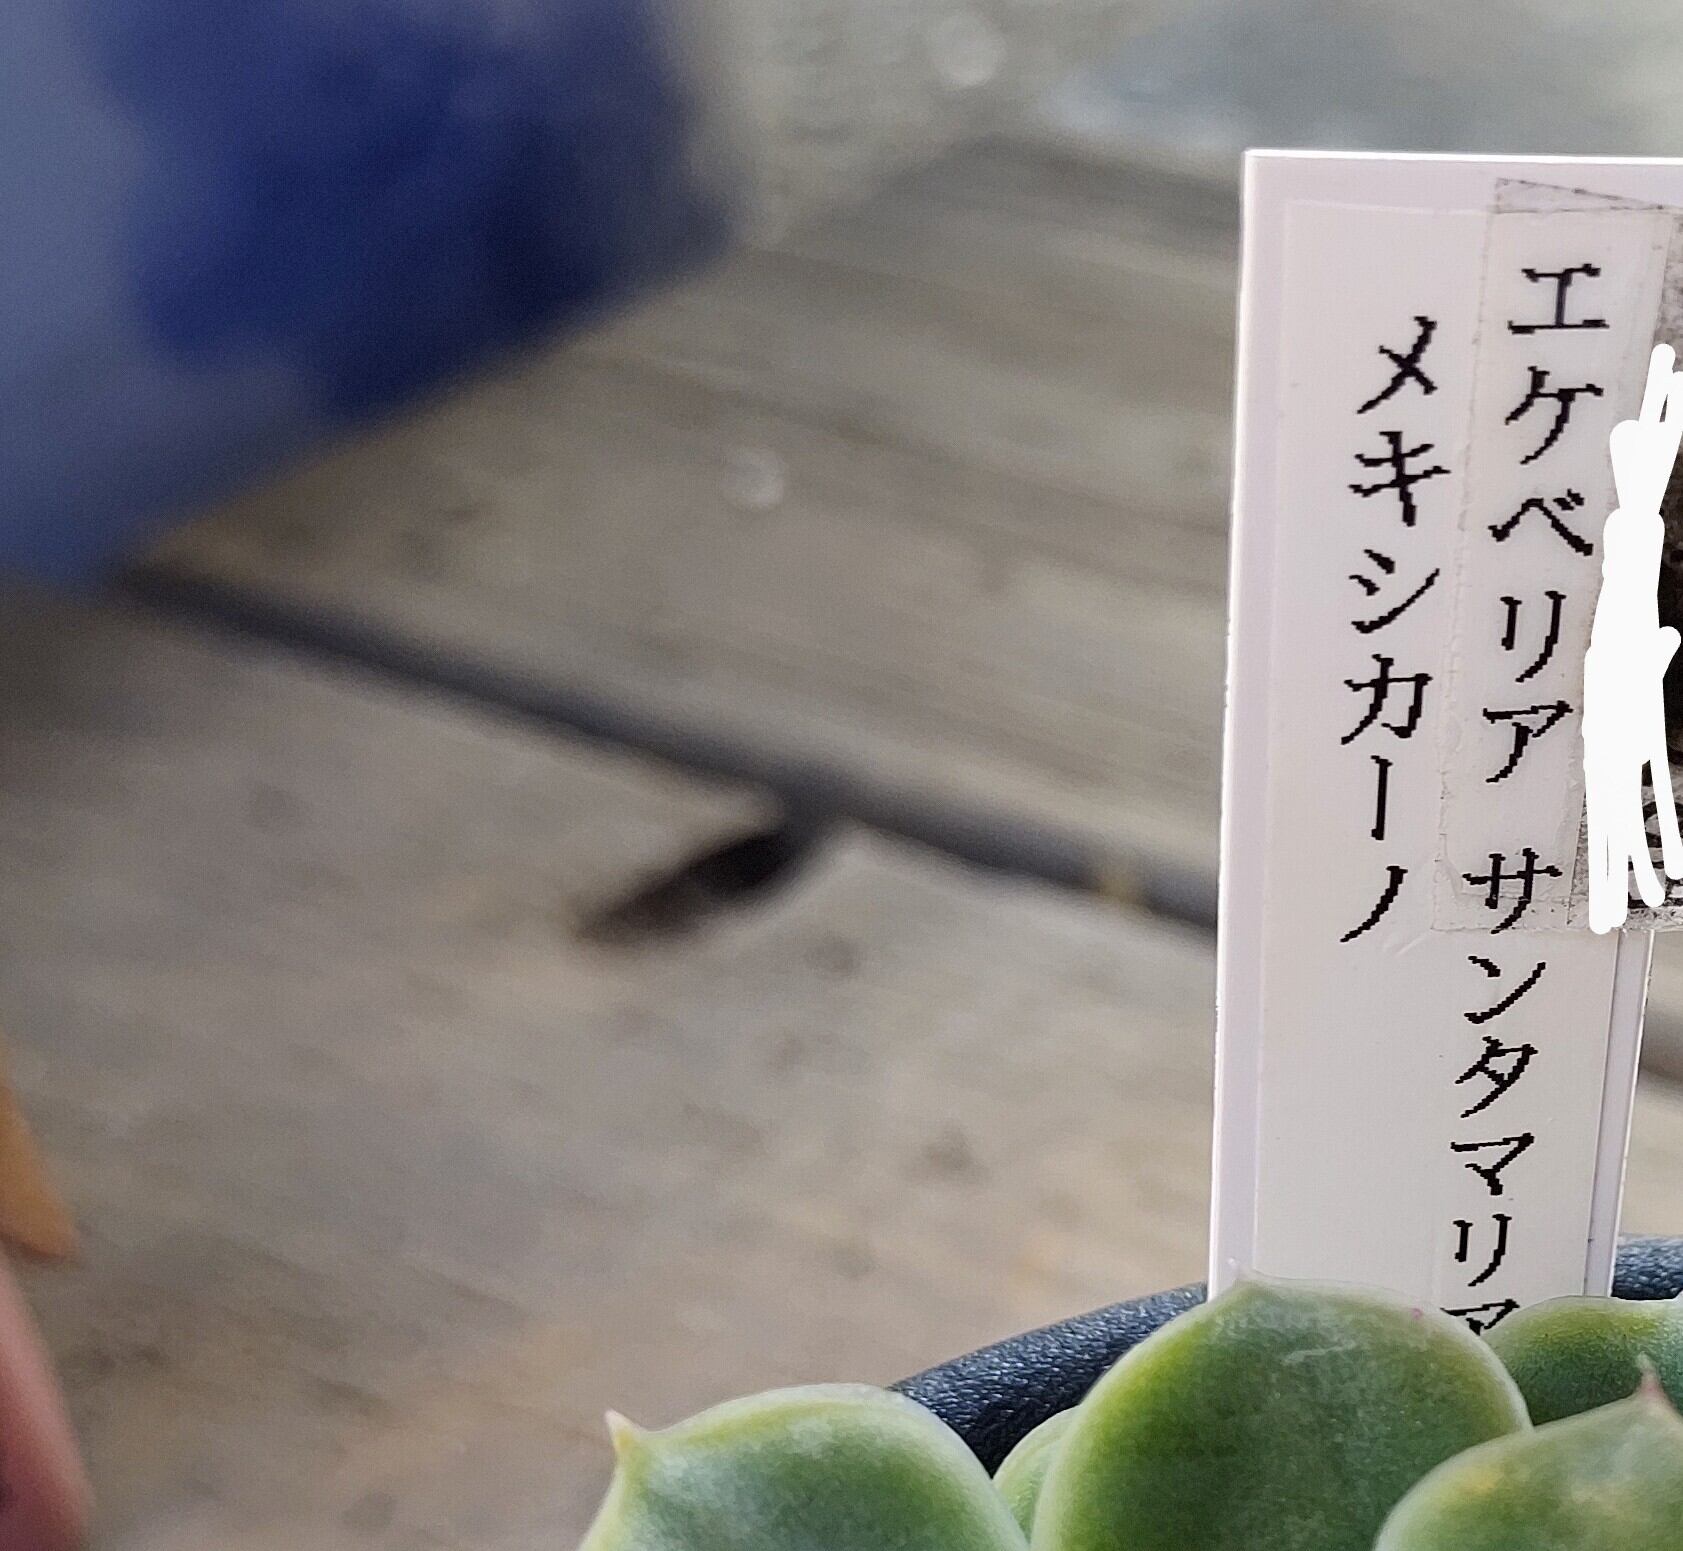 エケベリア サンタマリア
メキシカーノ